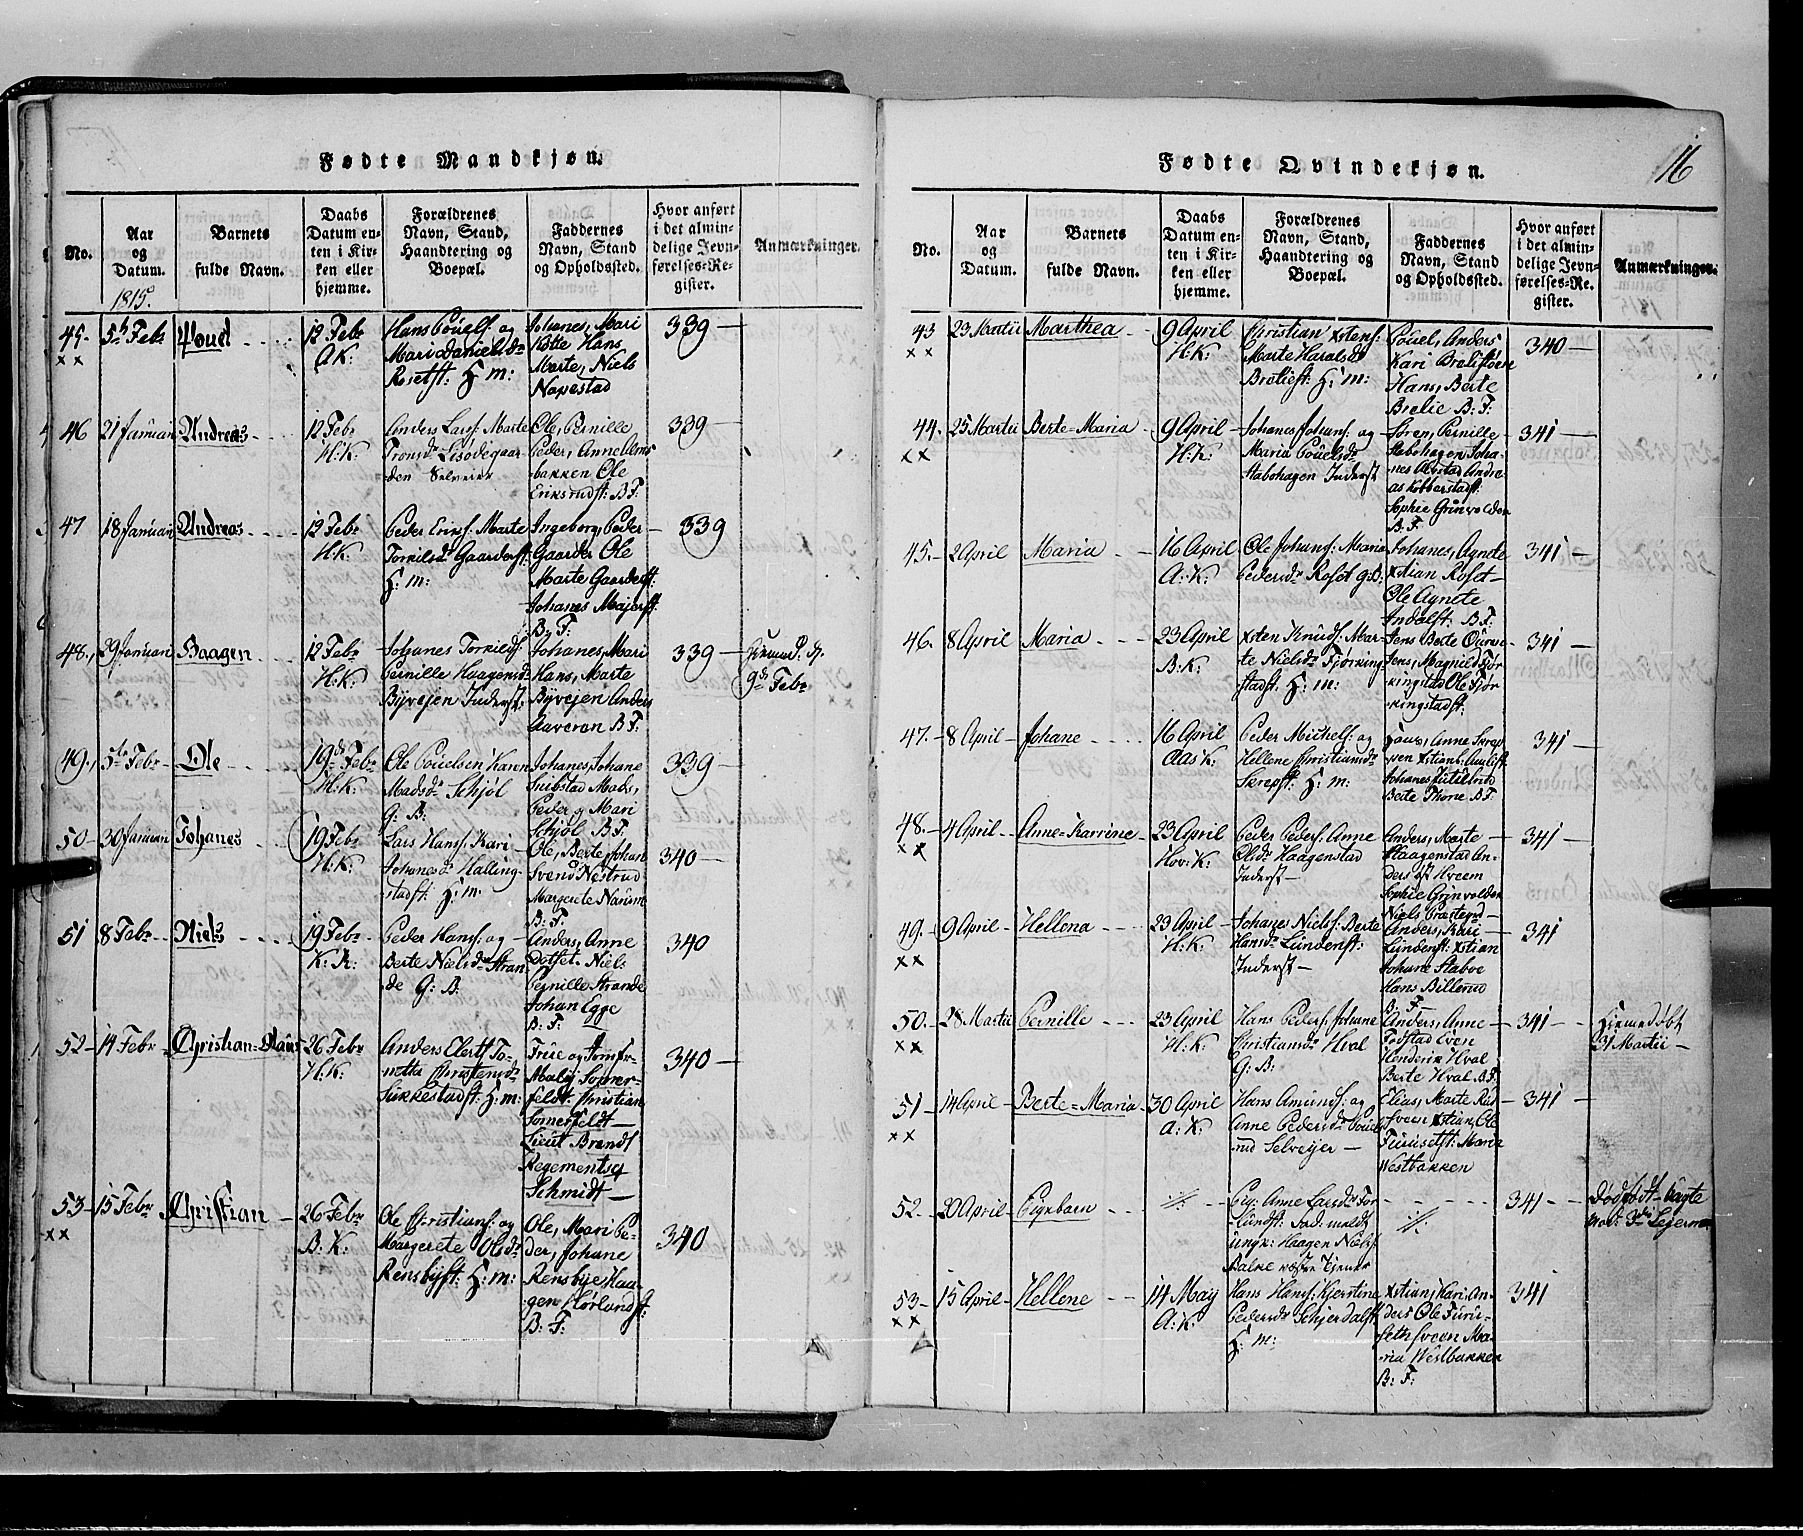 Fødte Mandkjøn.
No.
Aar og Datum.
Barnets fulde Navn.
Daabs Datum enten i Kirken eller hjemme.
Forældrenes Navn, Stand, Haandtering og Boepæl.
Faddernes Navn, Stand og Opholdssted.
Hvor anført i det almindelige Jevnførelses-Register.
Anmærkninger.
1815
45. 5te Febr Pouel 12 Febr A.K. Hans Pouels: og Mari Danielsdr Rosetst: H: m: Johanes, Mari Hans Marte, Niels 339
xx
46 21 Januari Andreas 12 Febr H:K: Anders Lars: Marte Selveier Ole, Pernille Peder, Anne bakken Ole Eriksrudst: B F: 339
47 18 Januari Andreas 12 Febr H.K: Peder Erics: Marte Torkilsdr Gaarderst: H: m: Ingeborg, Peder Gaarder Ole Marte Gaarderst: Johanes Majerst: B. F: 339
48. 29 Januari Haagen 12 Febr H:K: Johanes Torkilds: Pernille Haagensdr Byvejen Inderst: Johanes, Mari Hans, Marte Byvejen Anders Aaveran B F: 339 Hiemmed. d. 9de Febr
49. 5te Febr Ole 19de Febr H:K: Ole Pouelsen Karen Madsdr Schjøl G: B: Johanes, Johane Mads, Peder og Mari Schjøl B F: 339
50 30 Januari Johanes 19 Febr H:K: Lars Hans: Kari Johanesdr Hallingstadst: H: m: Ole, Berte, Johan Svend Nestrud Margrete Narum B: F: 340
51 8 Febr Niels 19 Febr K: K: Peder Hans: og Berte Nielsdr Strande G: B: Anders, Anne Niels Pernille Strande Johan Egge B: F: 340
52 14 Febr Christian=Olaus 26 Febr H.K: Anders Christensdr Sukkestadst: H: m: Frue og Jomfr Maly Somerfeldt Christian Somerfeldt Lieut Brandt Regements Schmidt 340
53 15 Febr Christian 26 Febr B. K: Ole Christians: og Margrete Olsdr Rensbyst: H: m: Ole, Mari Peder, Johane Rensbye, Haagen Hørlandst: B: F: 340
xx
Fødte Qvindekjøn.
16
No.
Aar og Datum.
Barnets fulde Navn.
Daabs Datum enten i Kirken eller hjemme.
Forældrenes Navn, Stand, Haandtering og Boepæl.
Faddernes Navn, Stand og Opholdssted.
Hvor anført i det almindelige Jevnførelses-Register.
Anmærkninger.
43 23 Martii Marthea 9 April H:K: Christian Xstens: Marte Haralsdr Breliest: H: m: Pouel, Anders Kari Hans, Berte Brelie B: F: 340
xx
44. 25 Martii Berte=Maria 9 April H:K: Johanes Johans: og Maria Pouelsdr Stabohagen Inderst Søren, Pernille Stabohagen Johanes Alfstad Andreas Kobberstadst: Sophie Grinvolden B. F: 341
xx
45. 2 April Maria 16 April A:K: Ole Johans: Maria Pedersdr Roset G: B: Johanes, Agnete Xstian Roset Ole Agnete B F: 341
46. 8 April Maria 23 April B:K: Xsten Knuds: Marte Nielsdr Fjørkingstadst. H: m: Jens Berte Jens, Magnil Fjørkingstad Ole Fjørkingstadst: 341
47. 8 April Johane 16 April Aas K: Peder Michels: og Hellene Christiansdr Skrepst: H: m: Anne Skreppen Xstian Johanes Berte Thone B F: 341
48. 4 April Anne=Karrine 23 April Hov:K: Peder Peders: Anne Olsdr Haagenstad Inderst Anders, Marte Haagenstad Anders Hveem Sophie Grinvolden 341
xx
49. 9 April Hellena 23 April H:K: Johanes Niels: Berte Hansdr Lundenst: Inderst Niels Anders, Kari Lundenst: Xstian Johane Staboe Hans Billerud B: F: 341
xx
50. 28 Martii Pernille 23 April H:K: Hans Peders: Johane Christiansdr Hval G: B: Anders, Anne Fodstad Even Henderik Hval Berte Hval B.F: 341 Hiemmedøbt 31 Martii
xx
51 14 April Berte=Maria 30 April A:K: Hans Amunds: og Anne Pedersdr Selveijer Elias, Marte Xstian, Ole Furusetst: Maria Westbakken 341
xx
52. 20 April Pigebarn Pig: Anne Larsdr Fad: meldt ungk: Haagen Niels: Balke Tjener 341 Dødfødt
53 15 April Hellene 14 May A:K: Hans Hans: Kjerstine Pedersdr Schjerdalst: H: m: Xstian, Kari Anders Ole Furusethsveen Maria Westbakken B: F: 341
xx